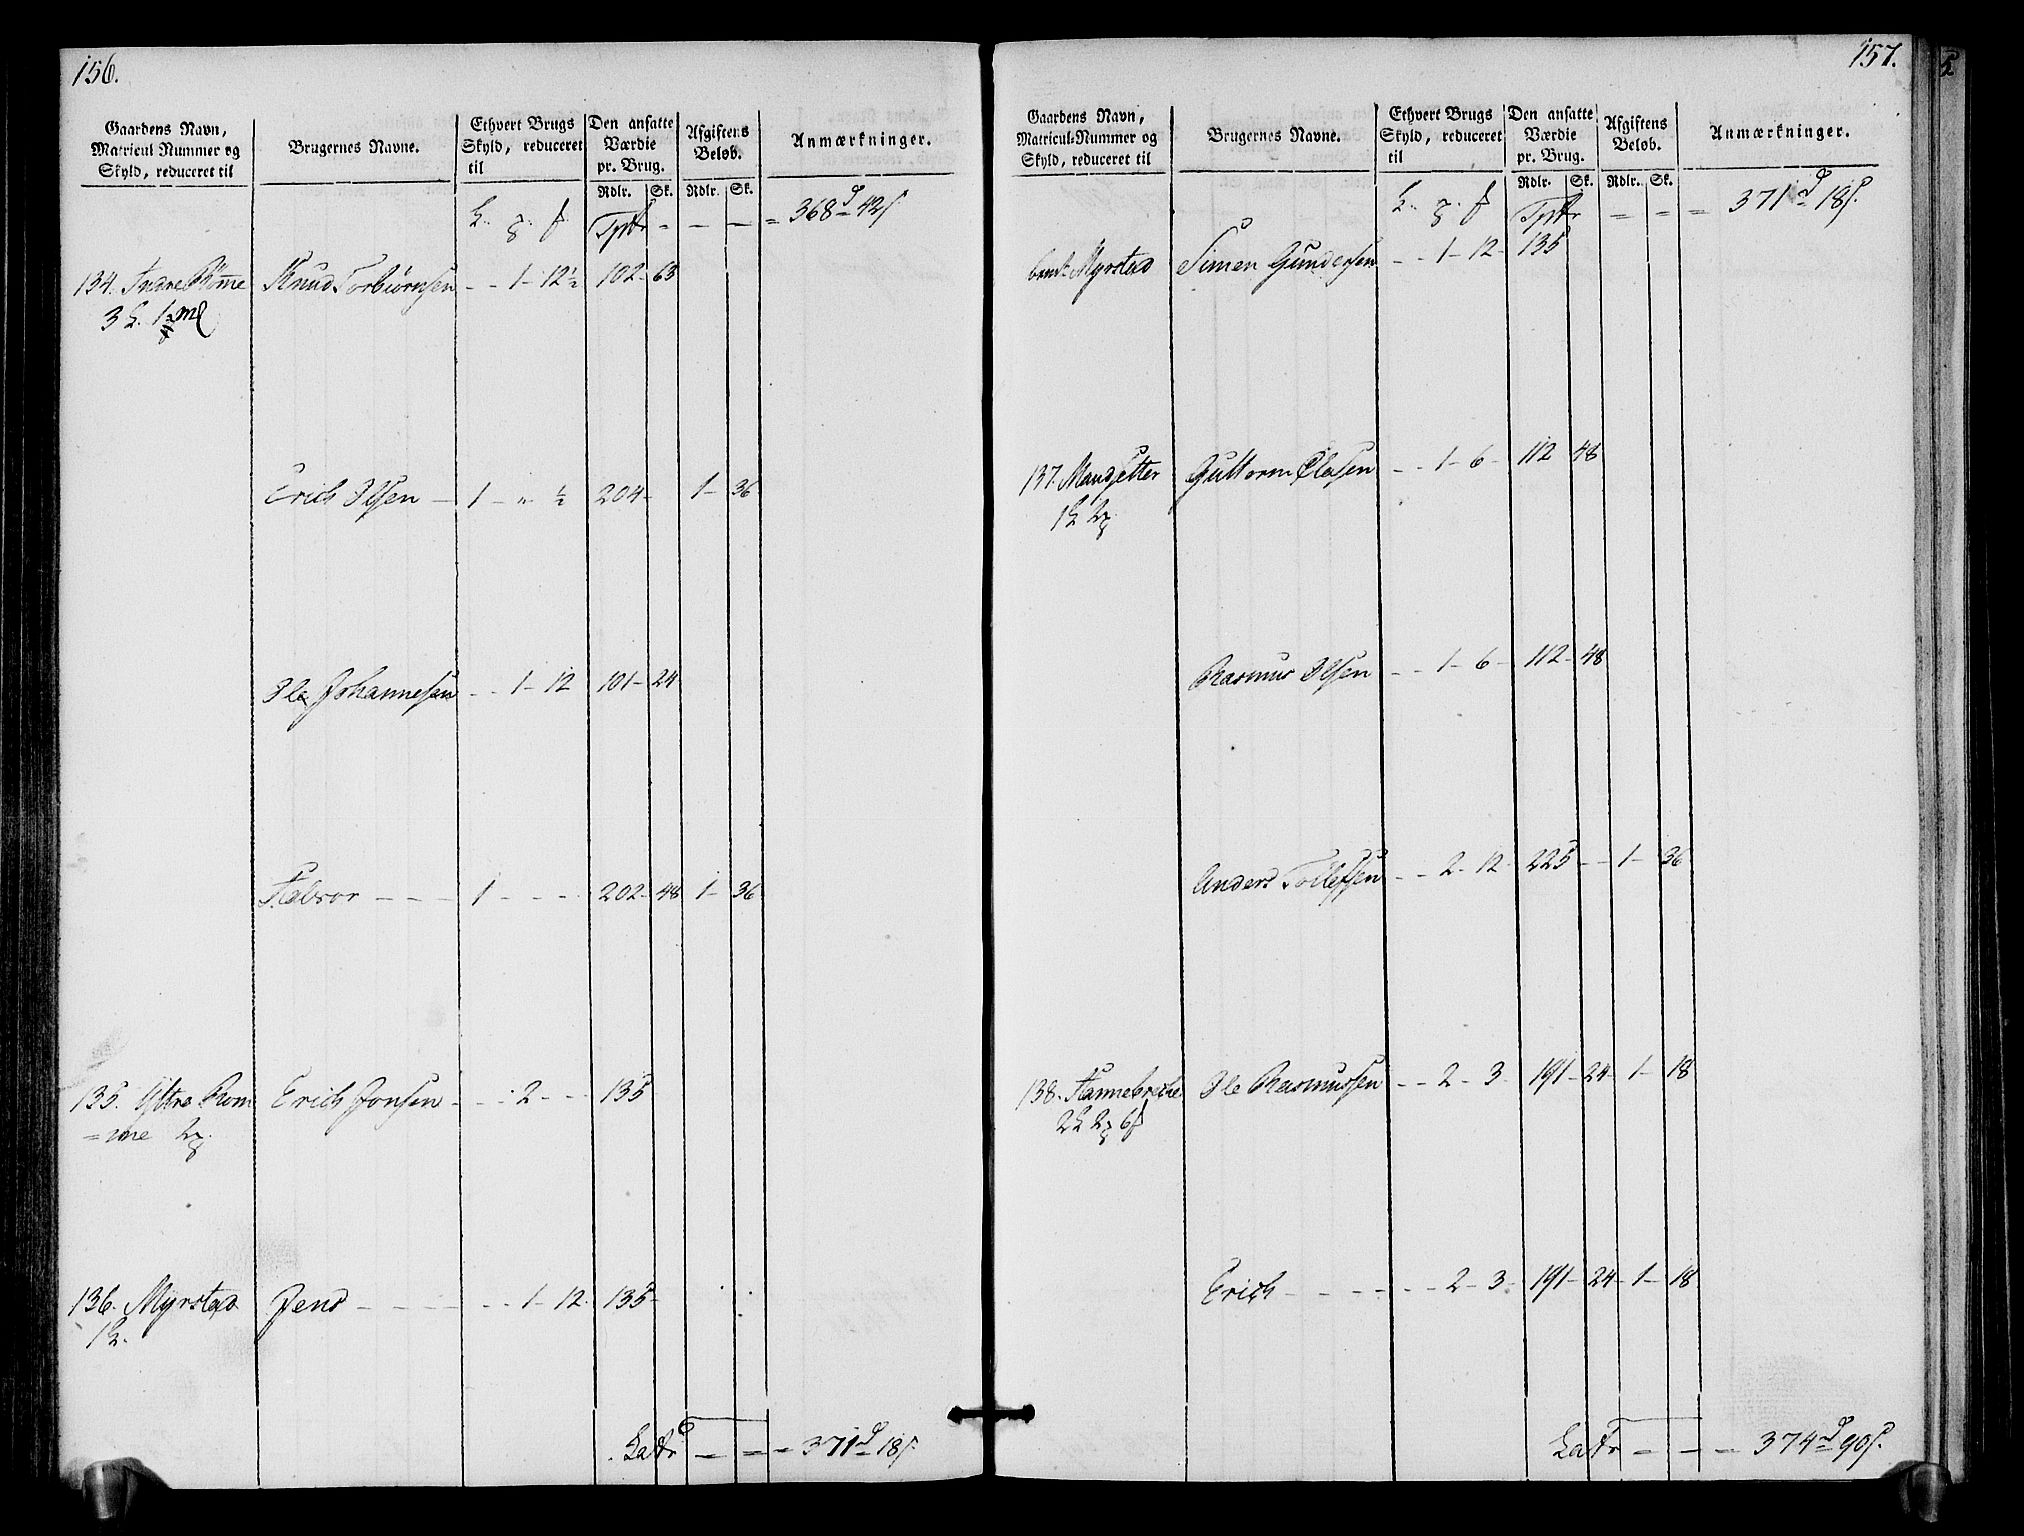 156.
Gaardens Navn, Matricul Nummer og Skyld, reduceret til
Brugernes Navne.
Ethvert Brugs Skyld, reduceret til
Den ansatte Værdie pr. Brug.
Afgiftens Beløb.
Anmærkninger.
Rdlr. Sk. Rdlr. Sk.
Tpt - - - = 368 d 42 s
134. Indre Rømme Knud Torbiørnsen - - 1 - 12½ 102 - 63
Erich Olsen - 1 - " ½ 204 - 1 - 36
Ole Johannesen - - 1 - 12 101 - 24
Halvor - - - 1 - - - 202 - 48 1 - 36
135. Ystre Rom Erich Jonsen - - - 2 - - 135
=me
136. Myrstad Jens - - - - - 1 - 12. 135 -
Latr - = = 371 d 18 s.
157.
Gaardens Navn, Matricul-Nummer og Skyld, reduceret til
Brugernes Navne.
Ethvert Brugs Skyld, reduceret til
Den ansatte Værdie pr. Brug.
Afgiftens Beløb.
Anmærkninger.
Rdlr. Sk. Rdlr. Sk.
Tpt = = = 371 d 18 s.
Myrstad Simen Gundersen - - 1 - 12 - 135
137. Mandsetter Guttorm Olesen - - 1 - 6 - 112 48
Rasmus Olsen - - 1 - 6 - 112 - 48
Anders Tollefsen - - 2 - 12 - 225 - - 1 - 36
138. Ole Rasmussen - - 2 - 3 - 191 - 24 - 1 - 18
Erich - - - - - - 2 - 3 - 191 - 24 - 1 - 18
Latr = - - 374 d 90 s.